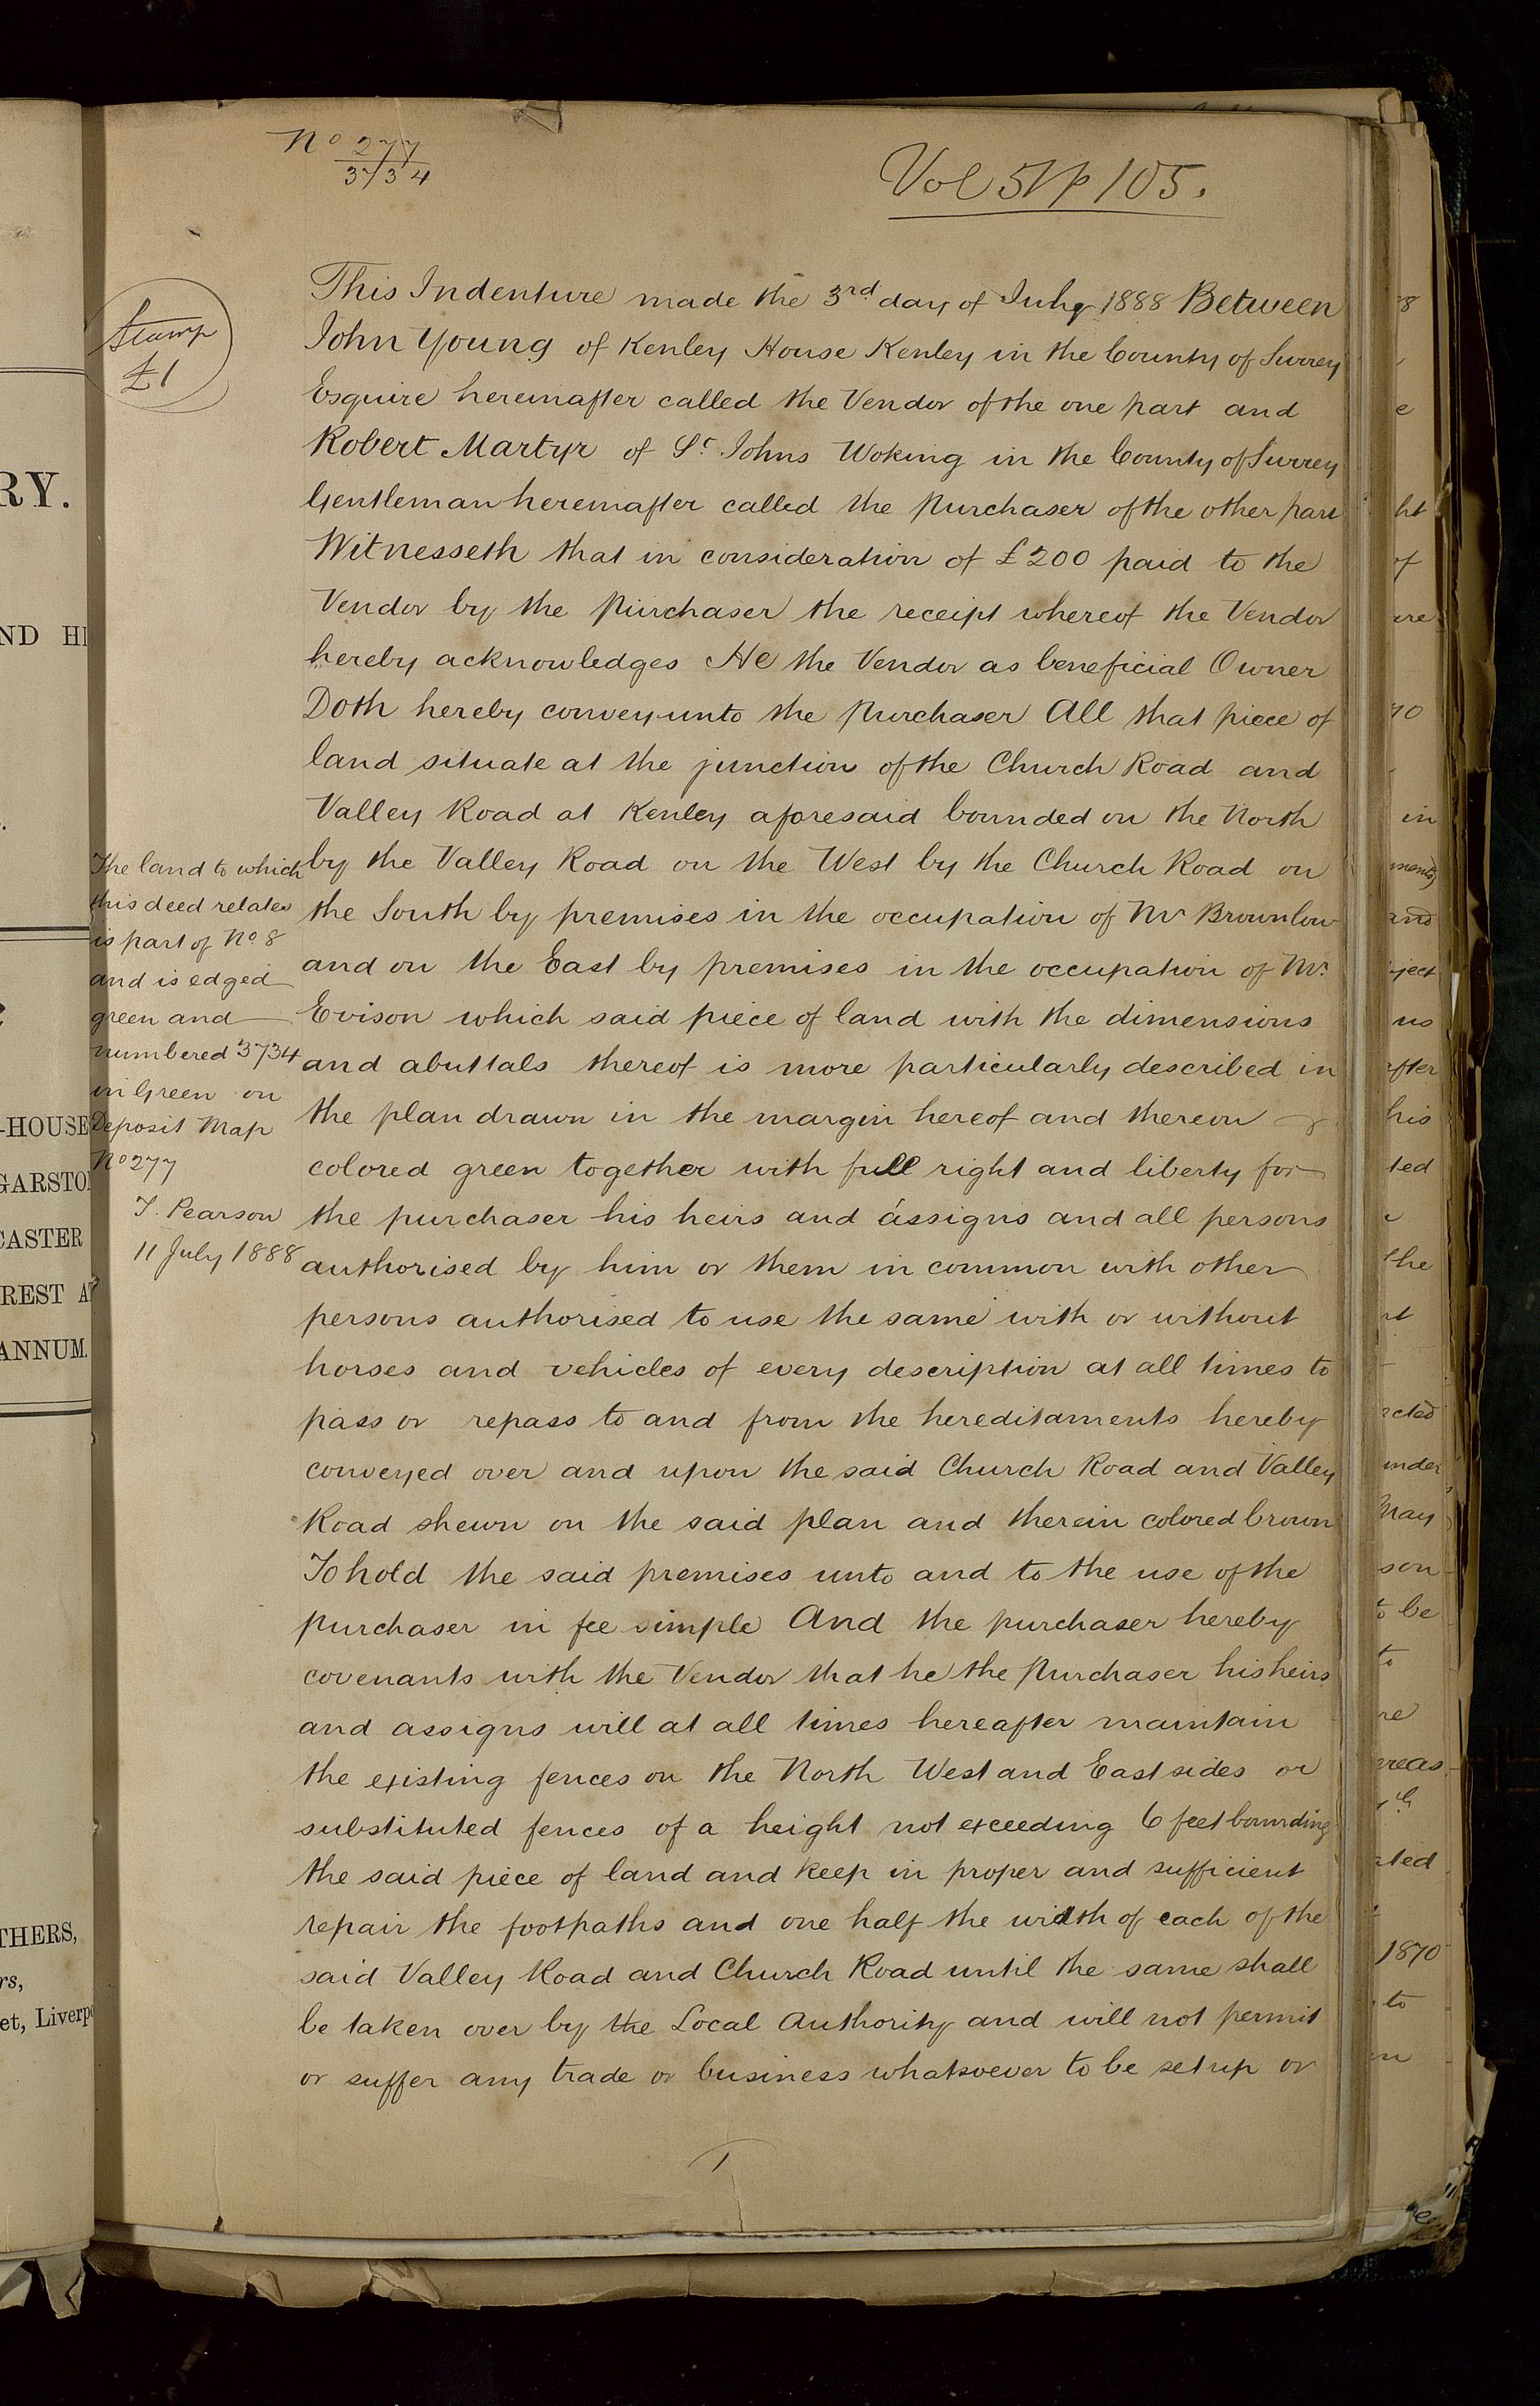 No 277
3734
Vol 51 p 105.
Stamp
£1
This Indenture made the 3rd day of July 1888 Between
John Young of Kenley House Kenley in the County of Surrey
Esquire hereinafter called the Vendor of the one part and
Robert Martyr of St. Johns Woking in the County of Surrey
Gentleman hereinafter called the Purchaser of the other part
Witnesseth that in consideration of £200 paid to the
Vendor by the Purchaser the receipt whereof the Vendor
hereby acknowledges He the Vendor as beneficial Owner
Doth hereby convey unto the Purchaser All that piece of
land situate at the junction of the Church Road and
Valley Road at Kenley aforesaid bounded on the North
by the Valley Road on the West by the Church Road on
the South by premises in the occupation of Mr Brownlow
and on the East by premises in the occupation of Mr.
Evison which said piece of land with the dimensions
and abuttals thereof is more particularly described in
the plan drawn in the margin hereof and thereon
colored green together with full right and liberty for
the purchaser his heirs and assigns and all persons
authorised by him or them in common with other
persons authorised to use the same with or without
horses and vehicles of every description at all times to
pass or repass to and from the hereditaments hereby
conveyed over and upon the said Church Road and Valley
Road shewn on the said plan and therein colored brown
To hold the said premises unto and to the use of the
purchaser in fee simple And the purchaser hereby
covenants with the Vendor that he the Purchaser his heirs
and assigns will at all times hereafter maintain
the existing fences on the North West and East sides or
substituted fences of a height not exceeding 6 feet bounding
the said piece of land and keep in proper and sufficient
repair the footpaths and one half the width of each of the
said Valley Road and Church Road until the same shall
be taken over by the Local Authority and will not permit
or suffer any trade or business whatsoever to be set up or
1
The land to which
this deed relates
is part of No. 8
and is edged
green and
numbered 3734
in Green on
Deposit Map
No 277
T. Pearson
11 July 1888
RY.
ND HI
-HOUSE
GARSTO
CASTER
REST A
ANNUM.
THERS,
rs,
et, Liverpo
ht
of
ere
in
ments
and
ject
us
after
his
ted
the
acted
under
May
son
to be
to
re
reas
ated
1870
to